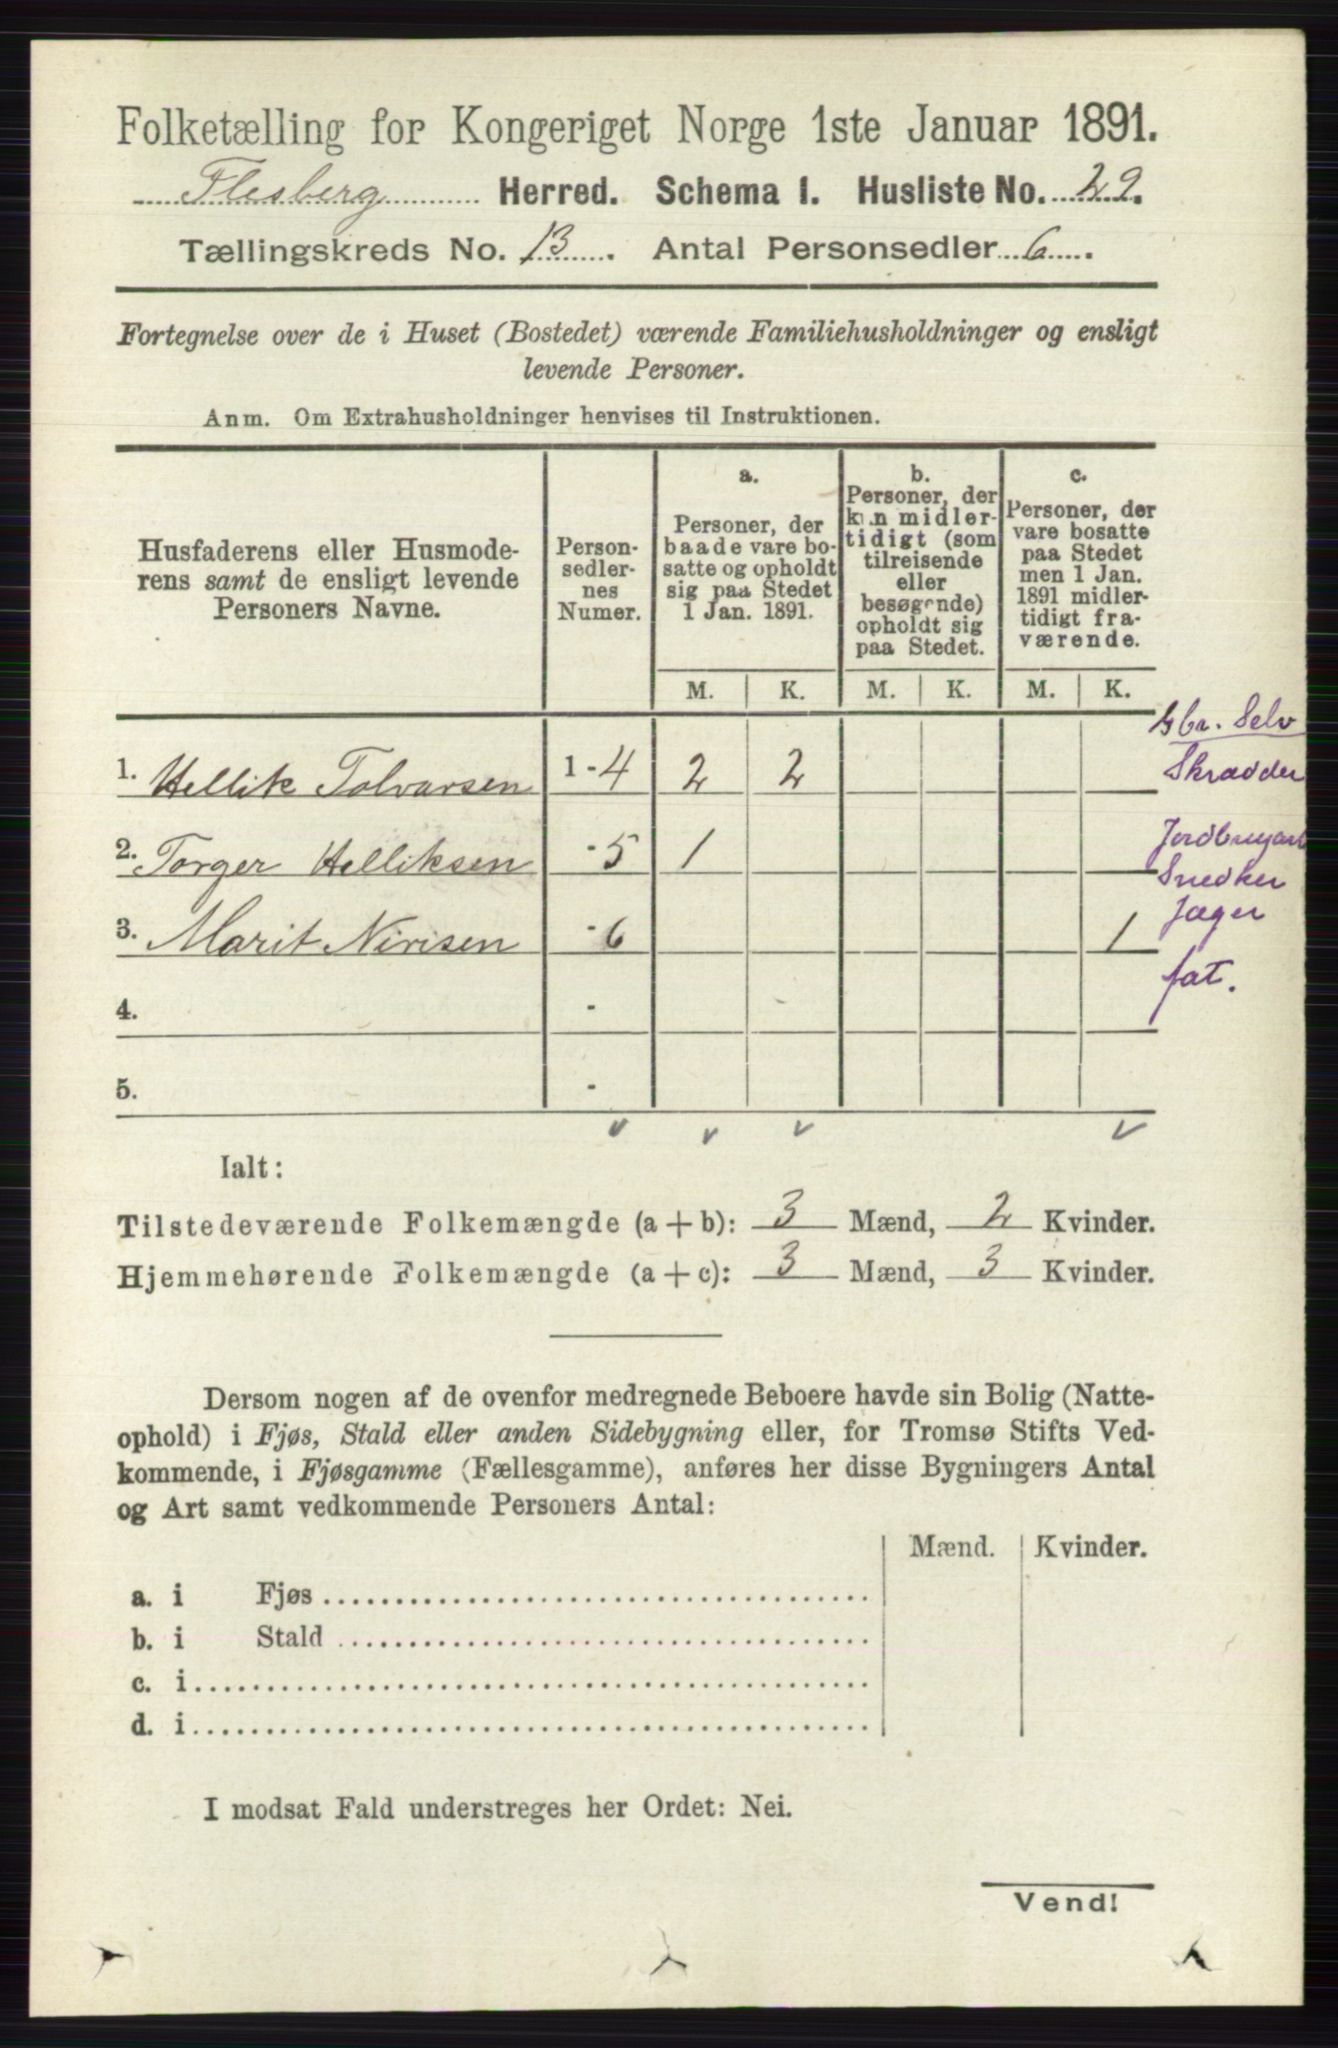 Folketælling for Kongeriget Norge 1ste Januar 1891.
Flesberg Herred. Schema 1. Husliste No. 29.
Tællingskreds No. 13. Antal Personsedler 6.
Fortegnelse over de i Huset (Bostedet) værende Familiehusholdninger og ensligt
levende Personer.
Anm. Om Extrahusholdninger henvises til Instruktionen.
Husfaderens eller Husmode-
rens samt de ensligt levende
Personers Navne.
Person-
sedler-
nes
Numer.
a.
Personer, der
baade vare bo-
satte og opholdt
sig paa Stedet
1 Jan. 1891.
b.
Personer, der
kun midler-
tidigt (som
tilreisende
eller
besøgende)
opholdt sig
paa Stedet.
c.
Personer, der
vare bosatte
paa Stedet
men 1 Jan.
1891 midler-
tidigt fra-
værende.
M. K. M. K. M. K.
Gbr. Selv
1. Hellik Tolvarsen 1-4 2 2
Skrædder
2. Torger Helliksen -5 1
Snedker
Jæger
3. Marit Nirisen -6 1
fat.
4. -
5. -
Ialt:
Tilstedeværende Folkemængde (a + b): 3 Mænd, 2 Kvinder.
Hjemmehørende Folkemængde (a + c): 3 Mænd, 3 Kvinder.
Dersom nogen af de ovenfor medregnede Beboere havde sin Bolig (Natte-
ophold) i Fjøs, Stald eller anden Sidebygning eller, for Tromsø Stifts Ved-
kommende, i Fjøsgamme (Fællesgamme), anføres her disse Bygningers Antal
og Art samt vedkommende Personers Antal:
Mænd. Kvinder.
a. i Fjøs
b. i Stald
c. i
d. i
I modsat Fald understreges her Ordet: Nei.
Vend!